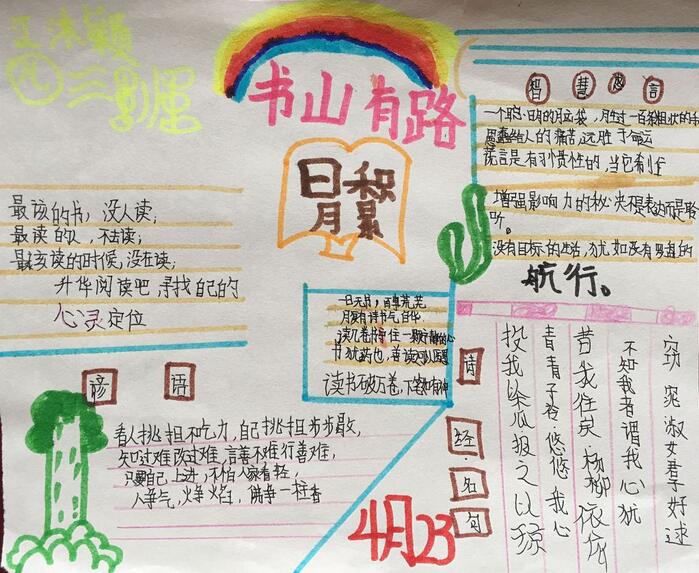 王沐颖
四三影屋
书山有路
日积
月累
智慧忠言
一个聪明的脑袋，胜过一百条粗壮的
愚蠢给人的痛苦，远胜于命运
谎言是有习惯性的，当它
增强影响力的秘诀不是表达而是聆
听。
没有目标的生活，犹如没有罗盘的
航行。
最该的书，没人读；
最读的人，不去读；
最该读的时候，没在读；
升华阅读吧 寻找自己的
心灵定位
一日无书，百事荒芜
腹有诗书气自华
书犹药也，善读可以医愚
读书破万卷，下笔如有神
谚语
看人挑担不吃力，自己挑担步步歇，
知过难改过难，言善不难行善难，
只要自己上进，不怕人家看轻，
人争气，火争焰，佛争一柱香
4月23
诗经名句
窈窕淑女君子好逑
不知我者谓我心犹
昔我往矣杨柳依依
青青子衿，悠悠我心
投我以木瓜报之以琼